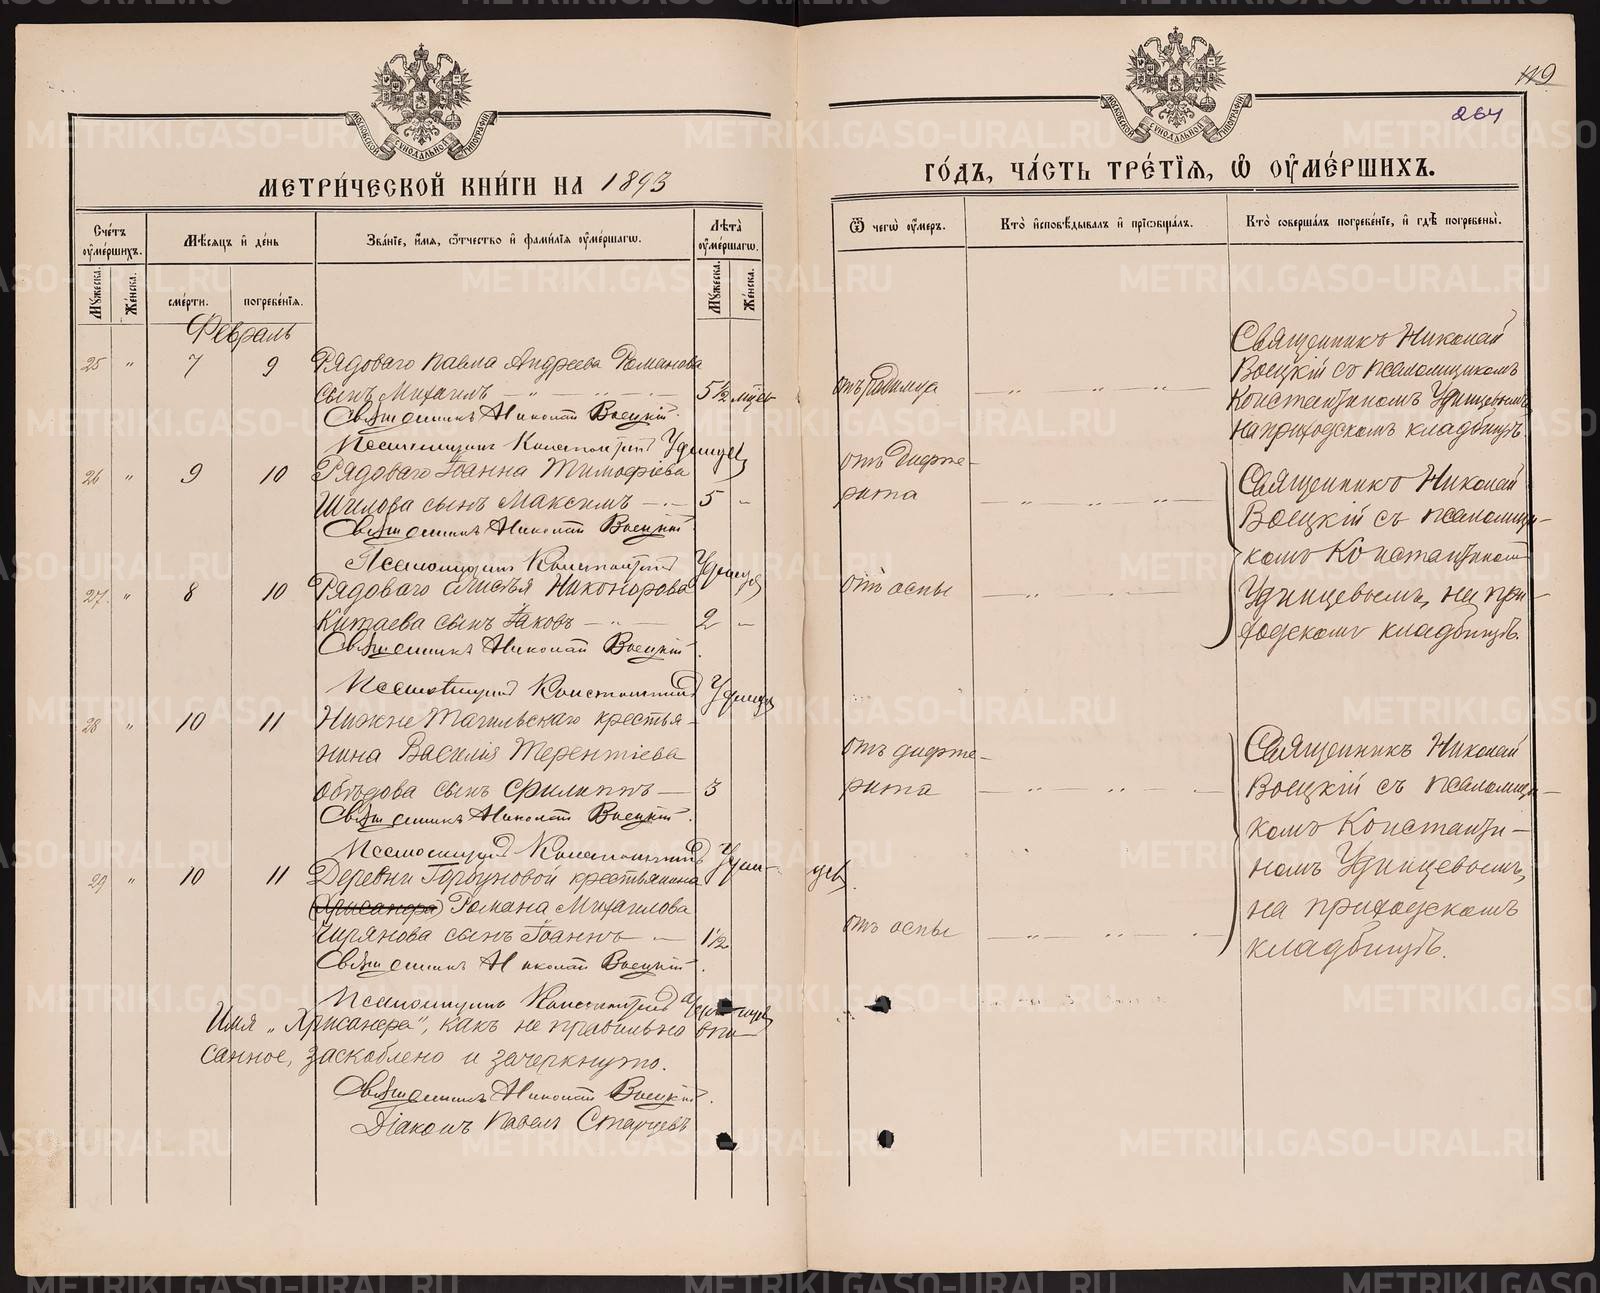 МЕТРИ́ЧЕСКОЙ КНИ́ГИ НА 1893
Сче́тъ оу҆ме́ршихъ.
Мѣ́сяцъ и҆ де́нь
Зва́нїе, и҆́мя, ѻ҆́тчество и҆ фами́лїя оу҆ме́ршагѡ.
Лѣ́та оу҆ме́ршагѡ.
Мꙋ́жеска.
Же́нска.
сме́рти.
погребе́нїѧ.
Мꙋ́жеска.
Же́нска.
Февраль
25 " 7 9 Рядоваго Павла Андреева Романова
сынъ Михаилъ 5 ½ мѣс
Священникъ Николай Воецкій.
Псаломщикъ Константинъ Удинцев
26 " 9 10 Рядоваго Іоанна Тимофіева
Шилова сынъ Максимъ 5 "
Священникъ Николай Воецкій
Псаломщикъ Константинъ Удинцев
27 " 8 10 Рядоваго Никонорова
Китаева сынъ Іаковъ 2 "
Священникъ Николай Воецкій.
Псаломщикъ Константинъ Удинцев
28 " 10 11 Нижне Тагильскаго крестья-
нина Василія Терентіева
сынъ Филиппъ 3
Священникъ Николай Воецкій.
Псаломщикъ Константинъ Удин-
цев.
29 " 10 11 Деревни Горбуновой крестьянина
(Хрисанфа) Романа Михаилова
Чирянова сынъ Іоаннъ 1½
Священникъ Николай Воецкій.
Псаломщикъ Константинъ Удинцев
Имя „Хрисанфа", какъ не правильно впи-
санное, заскоблено и зачеркнуто.
Священникъ Николай Воецкій.
Діаконъ Павелъ Старцевъ
119
264
ГО́ДЪ, ЧА́СТЬ ТРЕ́ТЇѦ, Ѽ ОУ҆МЕ́РШИХЪ.
Ѿ чегѡ̀ оу҆́меръ.
Кто̀ и҆сповѣ́дывалъ и҆ прїѡбща́лъ.
Кто̀ соверша́лъ погребе́нїе, и҆ гдѣ̀ погребены̀.
отъ родимца
Священникъ Николай
Воецкій съ псаломщикомъ
Константиномъ Удинцевымъ
на приходскомъ кладбищѣ.
отъ дифте-
рита
отъ оспы
Священникъ Николай
Воецкій съ псаломщи-
комъ Константиномъ
Удинцевымъ, на при-
ходскомъ кладбищѣ.
отъ дифте-
рита
отъ оспы
Священникъ Николай
Воецкій съ псаломщи-
комъ Константи-
номъ Удинцевымъ,
на приходскомъ
кладбищѣ.
METRIKI.GASO-URAL.RU